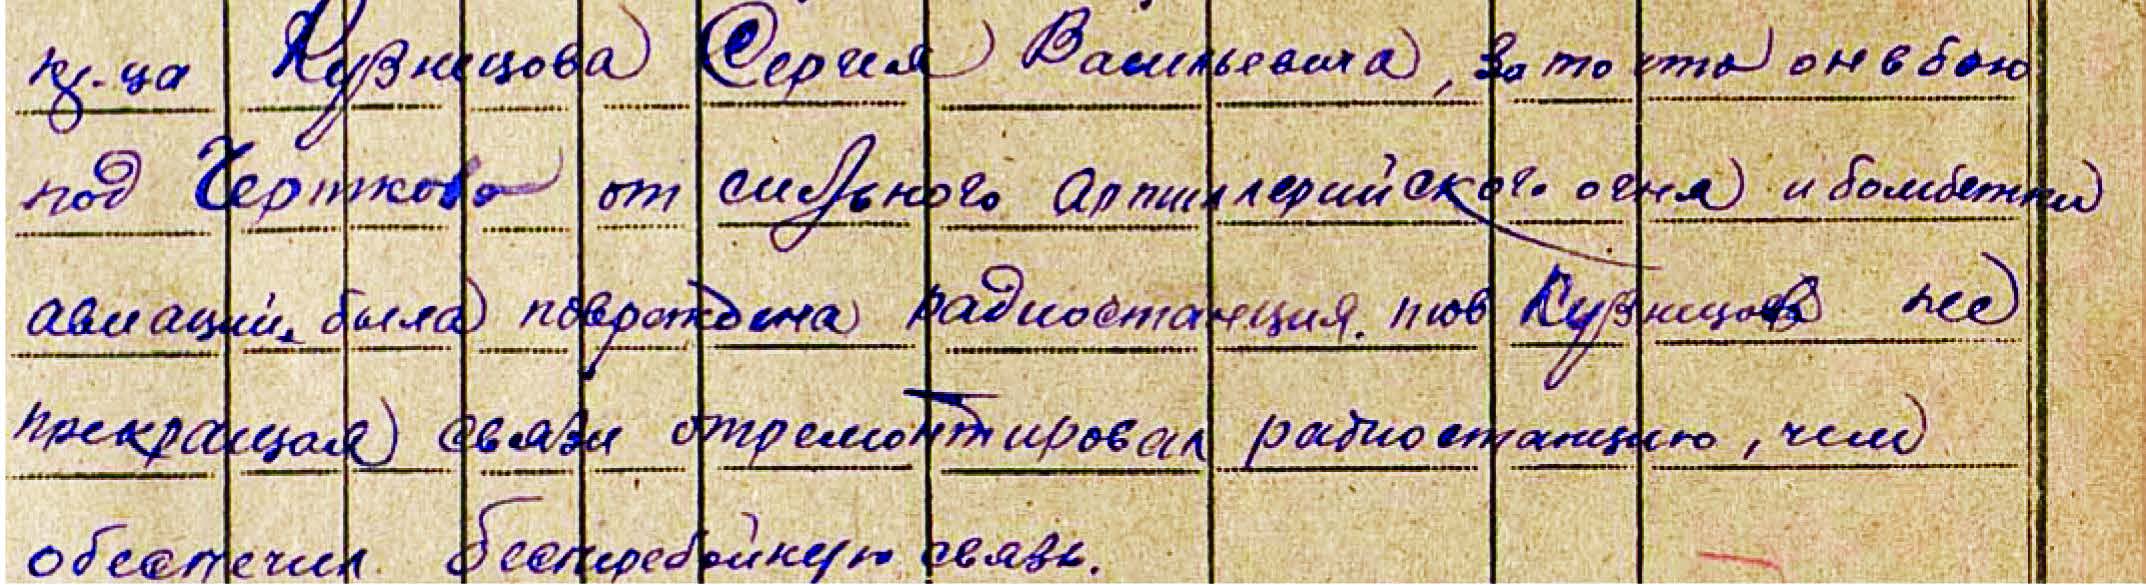 кр-ца Кузнецова Сергея Васильевича, за то что он в бою
под Чертково от сильного артиллерийского огня и бомбежки
авиации, была повреждена радиостанция. тов Кузнецов не
прекращая связи отремонтировал радиостанцию, чем
обеспечил бесперебойную связь.